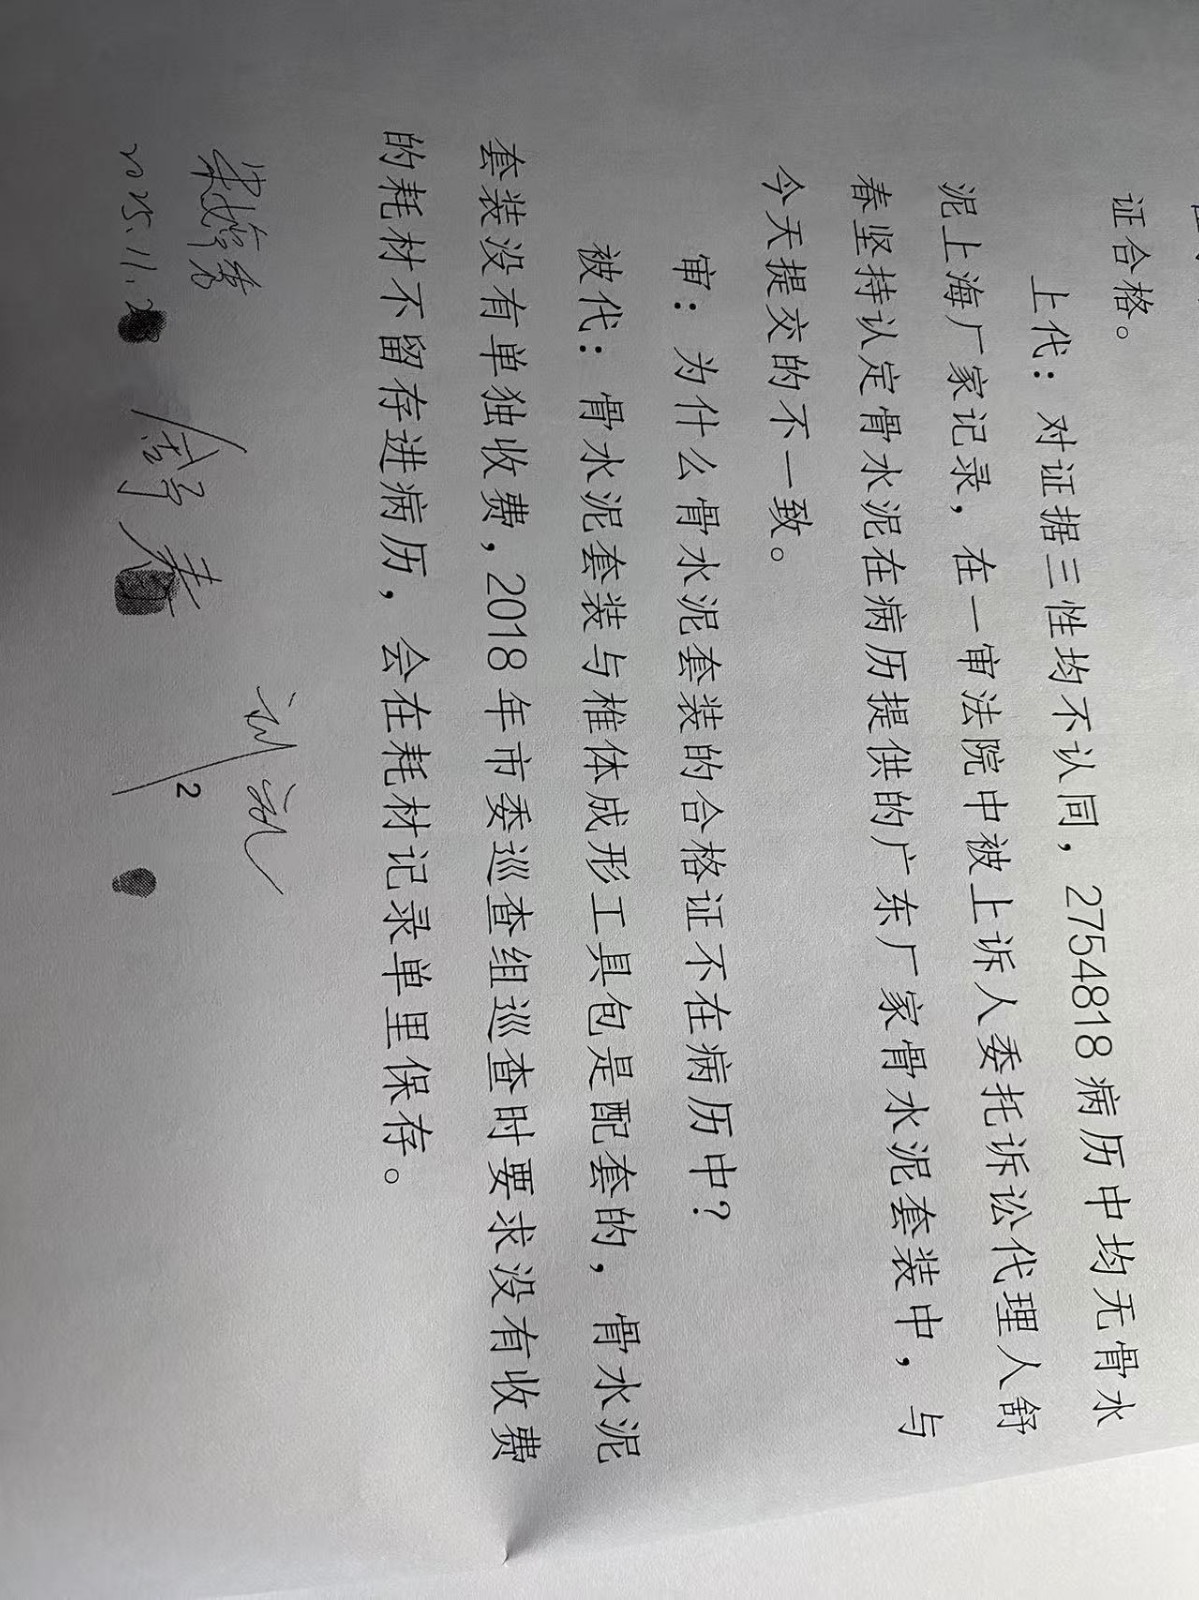 证合格。
上代：对证据三性均不认同，2754818病历中均无骨水
泥上海厂家记录，在一审法院中被上诉人委托诉讼代理人舒
春坚持认定骨水泥在病历提供的广东厂家骨水泥套装中，与
今天提交的不一致。
审：为什么骨水泥套装的合格证不在病历中？
被代：骨水泥套装与椎体成形工具包是配套的，骨水泥
套装没有单独收费，2018年市委巡查组巡查时要求没有收费
的耗材不留存进病历，会在耗材记录单里保存。
2025.11.2
2